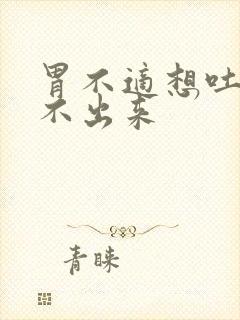 胃不适想吐
不出来
青睐